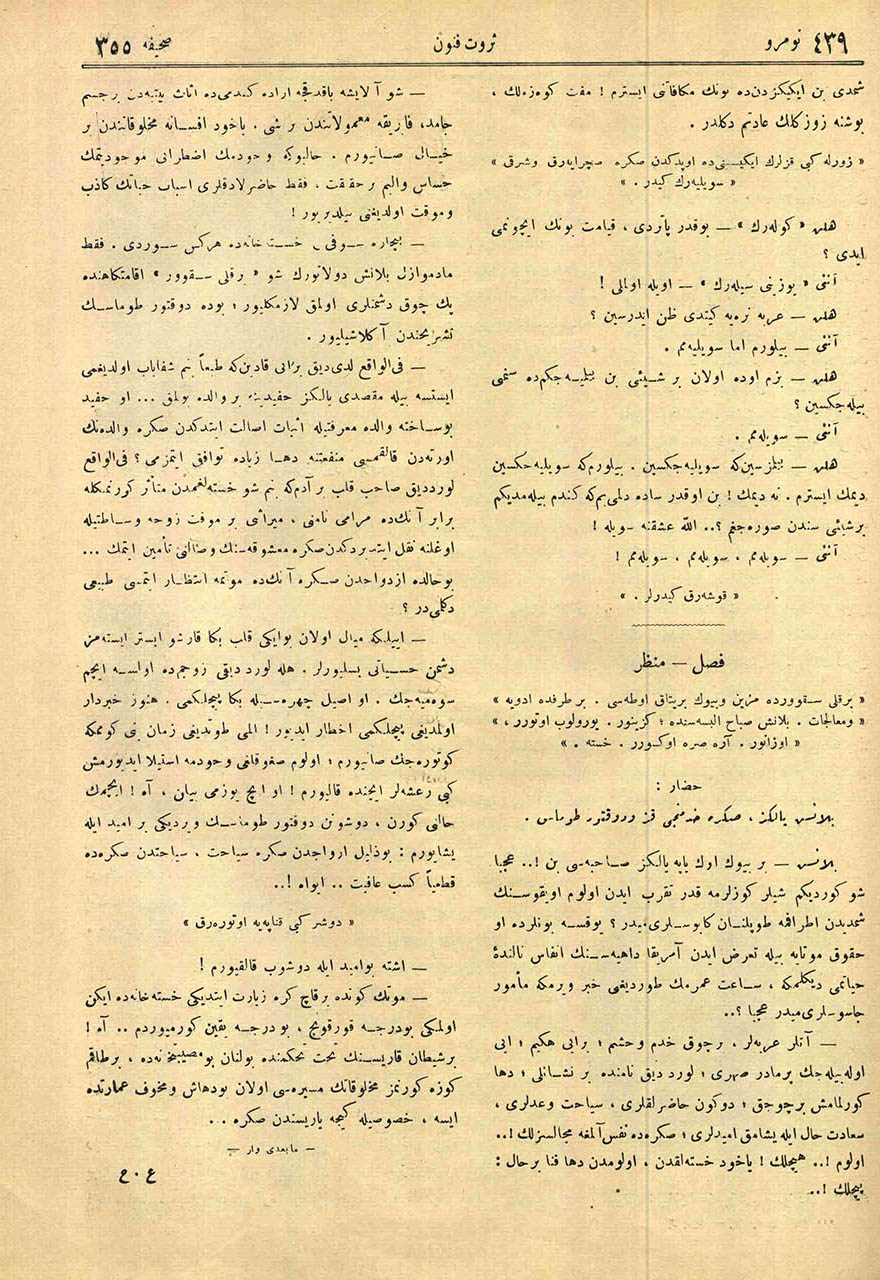 نومرو ٤٣٩
ثروت فنون
صحيفه ٣٥٥
شمدی بن ايكيكزدن‌ده بونك مكافاتنی ايسترم ! مفت كوزه‌لك ،
بوشنه زوزكلك عادتم دكلدر .
« زورله كبی قزلرك ايكيسنی‌ده اوپدكدن صكره صچرايه‌رق وشرق »
« سويليه‌رك كيدر . »
هلن « كوله‌رك » — بوقدر پاتردی ، قيامت بونك ايچونمی
ايدی ؟
آننی « يوزينی سيله‌رك » — اويله اولملی !
هلن — عربه نره‌يه كيتدی ظن ايدرسين ؟
آننی — بيلورم اما سويليه‌مم .
هلن — بزم اوده اولان بر شيئی بن بيليه‌جكم‌ده سنمی
بيله‌جكسين ؟
آننی — سويله‌مم .
هلن — بيلمزسين‌كه سويليه‌جكسين . بيلورم‌كه سويليه‌جكسين
ديمك ايسترم . نه ديمك ! بن اوقدر ساده دلمی‌يم‌كه كندم بيله‌مديكم
برشيئی سندن صوره‌جغم ؟.. الله عشقنه سويله !
آننی — سويله‌مم ، سويله‌مم ، سويله‌مم !
« قوشه‌رق كيدرلر . »
فصل — منظر
« برقلی سقوورده مزين وبيوك بريتاق اوطه‌سی . برطرفده ادويه »
« ومعالجات . بلانش صباح البسه‌سنده ؛ كزينور . يورولوب اوتورر ، »
« اوزانور . آره صره اوكسورر . خسته . »
حضار :
بلانش يالكز ، صكره خدمتجی قز ودوقتور طوماس .
بلانش — بر بيوك اوك ياپه يالكز صاحبه‌سی بن !.. عجبا
شو كورديكم شيلر كوزلرمه قدر تقرب ايدن اولوم اويقوسنك
شمديدن اطرافمه طوپلنان كابوسلری‌ميدر ؟ يوقسه بونلرده او
حقوق موتايه بيله تعرض ايدن آمريقا داهيه‌سنك انفاس نالندهٔ
حياتمی ديكلمكه ، ساعت عمرمك طورديغنی خبر ويرمكه مأمور
جاسوسلری‌ميدر عجبا ؟..
— آتلر عربه‌لر ، برچوق خدم وحشم ؛ برايی حكيم ؛ ايی
اوله‌بيله‌جك برمادر صهری ؛ لورد ديق نامنده بر نشانلی ؛ دها
كورلمامش برچوجق ؛ دوكون حاضرلقلری ، سياحت وعدلری ،
سعادت حال ايله يشامق اميدلری ؛ صكره‌ده نفس آلمغه مجالسزلك !..
اولوم !.. هيچلك ! ياخود خسته‌لقدن ، اولومدن دها فنا برحال :
پيچلك !..
— شو آلايشه باقدقجه اراده كندمی‌ده اثاث بيتيه‌دن برجسم
جامد، فابريقه معمولاتندن برشی . ياخود افسانه مخلوقاتندن بر
خيال صانيورم . حالبوكه وجودمك اضطرابی موجوديتمك
حساس واليم برحقيقت ، فقط حاضرلادقلری اسباب حياتك كاذب
وموقت اولديغنی بيلديريور !
— بيچاره سوفی خسته‌خانه‌ده هركس سوردی . فقط
مادموازل بلانش دولانورك شو « برقلی سقوور » اقامتكاهنده
پك چوق دشمنلری اولمق لازمكليور ؛ بوده دوقتور طوماسك
تشريحندن آكلاشيليور .
— فی‌الواقع لدی‌ديق برانی قادين‌كه طبعاً بنم شفاياب اولديغمی
ايستسه بيله مقصدی يالكز حفيدينه بر والده بولمق ... او حفيد
بوساخته والده معرفتيله اثبات اصالت ايتدكدن صكره والده‌نك
اورته‌دن قالقمسی منفعتنه دها زياده توافق ايتمزمی ؟ فی‌الواقع
لوردديق صاحب قلب برآدم‌كه بنم شو خسته‌لغمدن متأثر كورنمكله
برابر آنك‌ده مرامی نامنی ، ميراثی بر موقت زوجه وساطتيله
اوغلنه نقل ايتديردكدن صكره معشوقه‌سنك وصالنی تأمين ايتمك ...
بوحالده ازدواجدن صكره آنك‌ده موتمه انتظار ايتمسی طبيعی
دكلمی‌در ؟
— اييلكه ميال اولان بوايكی قلب بكا قارشو ايستر ايسته‌مز
دشمن حسياتی بسليورلر . هله لورد ديقی زوجم‌ده اولسه ايچم
سوه‌ميه‌جك . او اصيل چهره‌سيله بكا پيچلكمی . هنوز خبردار
اولمديغی پيچلكمی اخطار ايديور ! المی طوتديغی زمان بنی كوممكه
كوتوره‌جك صانيورم ؛ اولوم صغوقلغی وجودمه استيلا ايديورمش
كبی رعشه‌لر ايچنده قاليورم ! او ايچ يوزمی بيان ، آه ! ايچمك
حالنی كورن ، دوشونن دوقتور طوماسك ويرديكی بر اميد ايله
يشايورم : بوذليل ازواجدن صكره سياحت ، سياحتدن صكره‌ده
قطعياً كسب عافيت .. ايواه !..
« دوشر كبی قناپه‌يه اوتوره‌رق »
— اشته بواميد ايله دوشوب قالقيورم !
— موتك كونده برقاچ كره زيارت ايتديكی خسته‌خانه‌ده ايكن
اولمكی بودرجه قورقونج ، بودرجه يقين كورميوردم .. آه !
برشيطان قاريسنك تحت تحكمنده بولنان بومصيبتخانه‌ده ، برطاقم
كوزه كورنمز مخلوقاتك مسيره‌سی اولان بودهاش ومخوف عمارتده
ايسه ، خصوصيله كيجه ياريسندن صكره ..
— مابعدی وار —
ع . ح